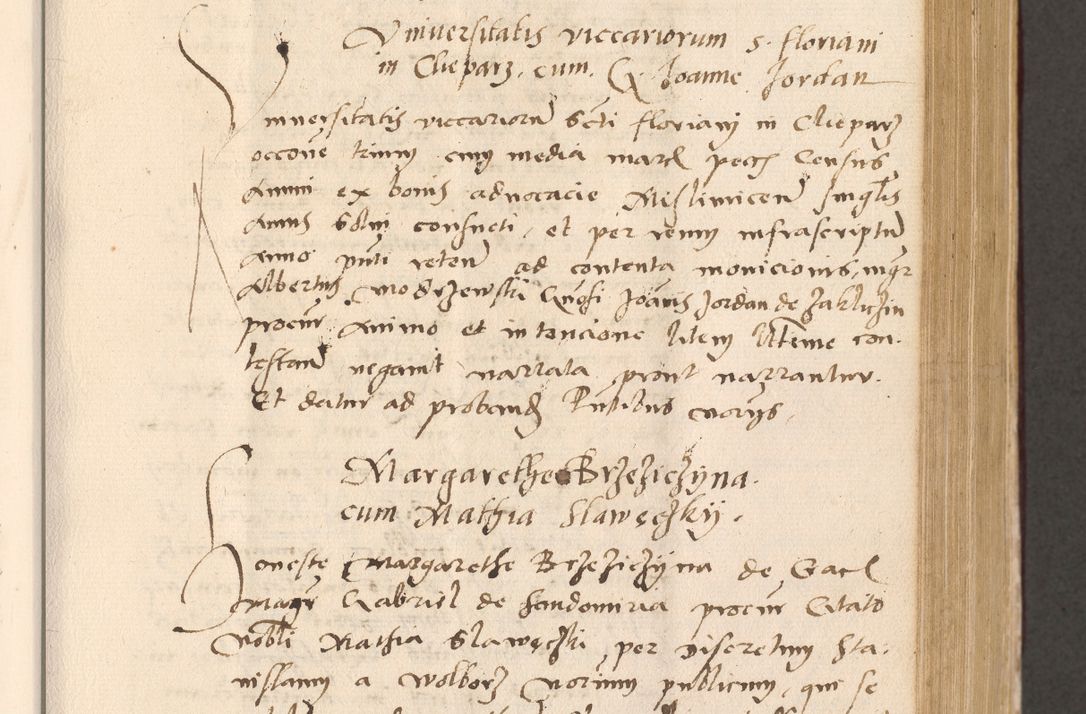 Universitatis viccariorum S. Floriani
in Cleparz. cum. G. Joanne Jordan
Universitatis viccariorum Scti Floriani in Cleparz
occone trium cum media marcis pecc Census
Annui ex bonis advocacie Mislimicen singlis
Annis solui consueti, et per reum infrascriptum
Anno pnti reten ad contenta monicionis, mgr
Albertus Modrzewski Gnosi Joanis Jordan de Zakliczin
procur Animo et intencione litem ltteme con.
testan negauit narrata prout narrantur.
Et datur ad proband Rntibus nouis.
Margarethe Brzeziczyna.
cum Mathia Slaweczky.
Honeste Margarethe Brzeziczyna de Gacz
magr Gabriel de Sandomiria procur Citato
Nobli Mathia Slaweczki per discretum Sta-
nislaum a Wolborz Norium publicum, qui se